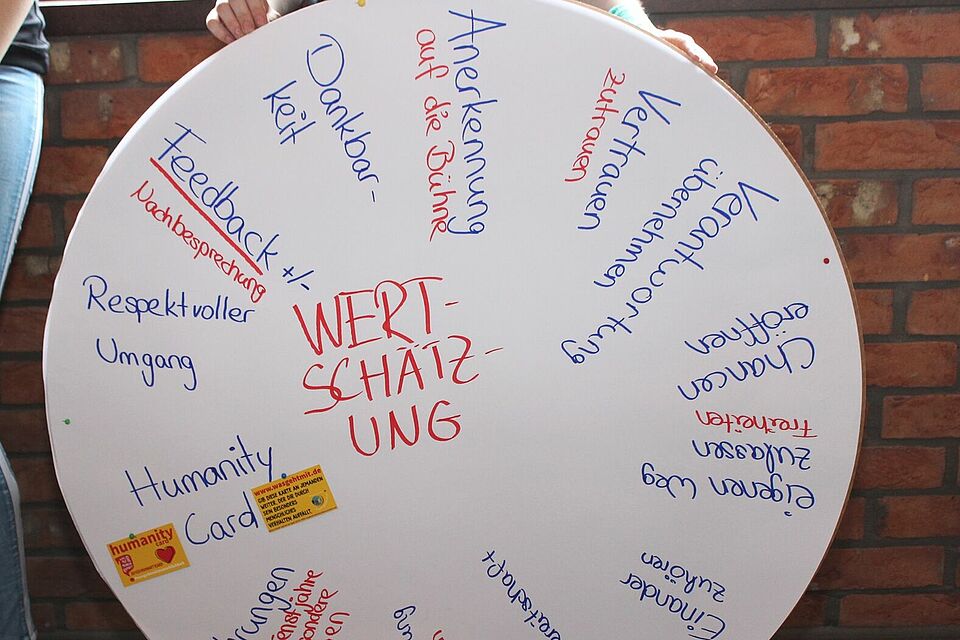 WERT-
SCHÄTZ-
UNG
Anerkennung
auf die Bühne
Vertrauen
zutrauen
Verantwortung
übernehmen
Chancen
eröffnen
eigenen Weg
zulassen
Freiheiten
Einander
zuhören
Humanity
Card
humanity
card
www.wasgehtmit.de
GIB DIESE KARTE AN JEMANDEN
WEITER, DER DIR DURCH
SEIN BESONDERS
MENSCHLICHES
VERHALTEN AUFFÄLLT.
Respektvoller
Umgang
Feedback +/-
Nachbesprechung
Dankbar-
keit